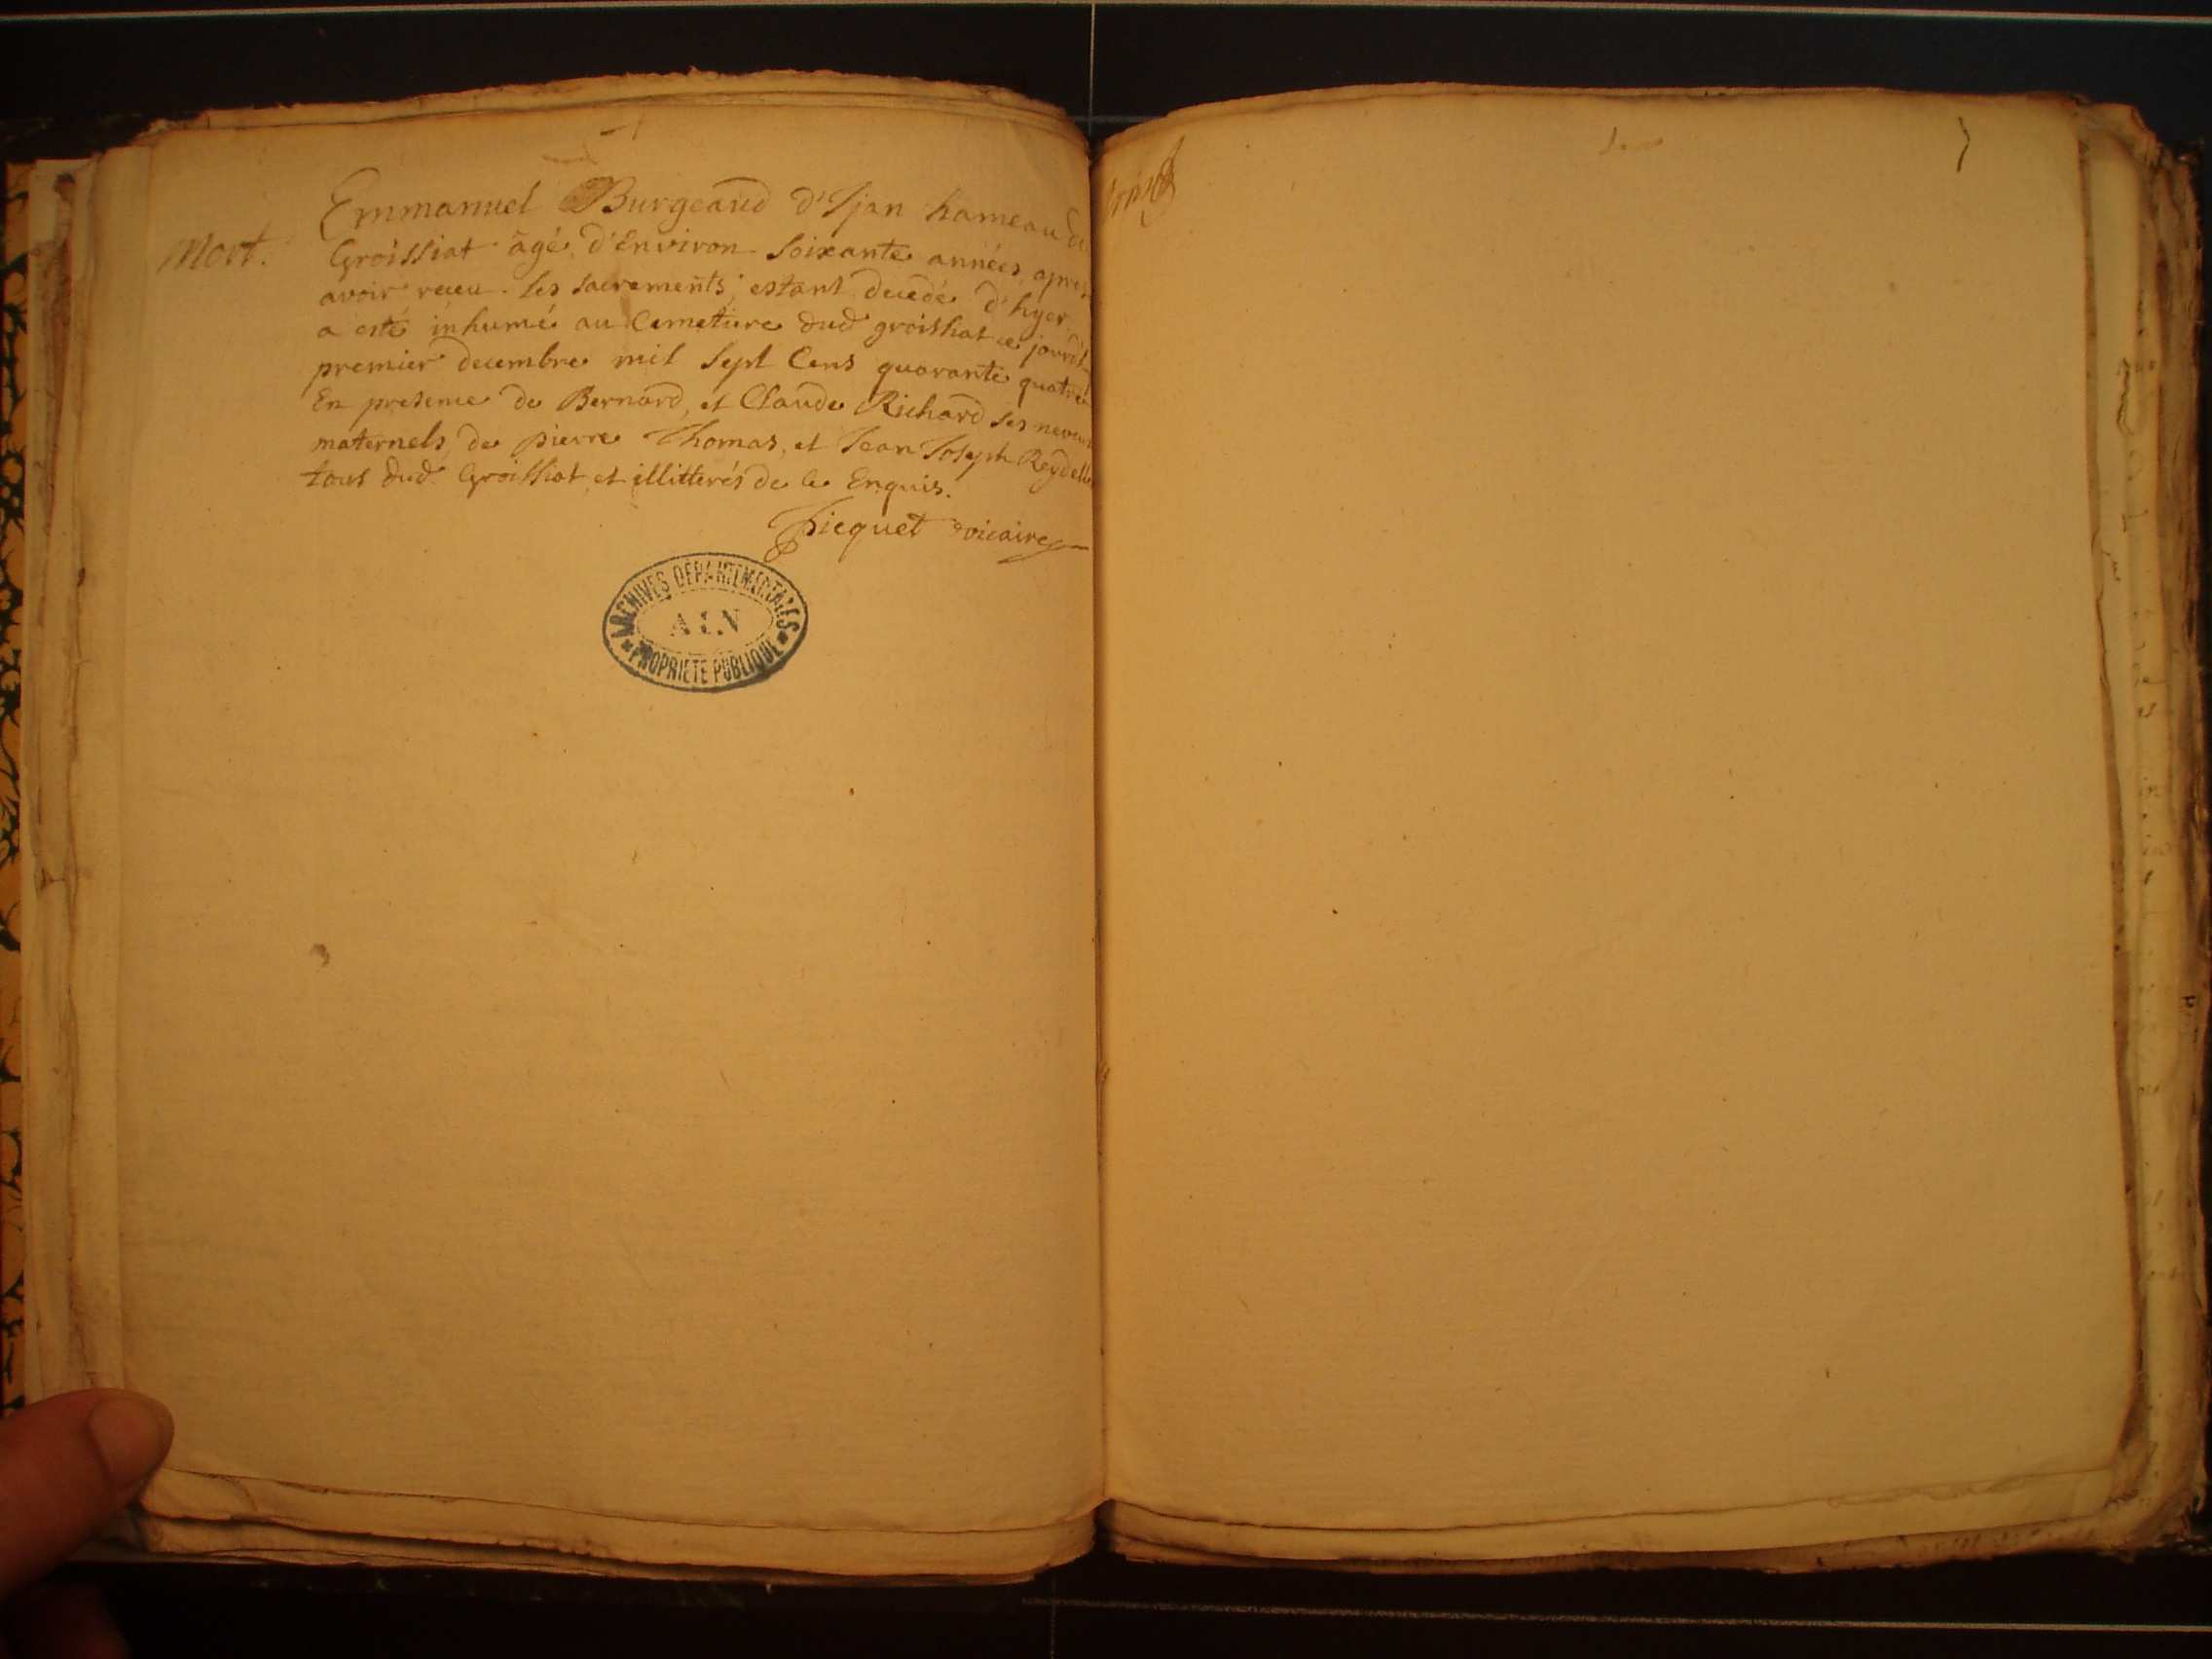 Emmanuel Burgeaud d'Ijan hameau de
Mort.
Groissiat âgé d'Environ Soixante années, apres
avoir receu les sacrements, estant decedé d'hyer,
a esté inhumé au Cimetiere dud groissiat ce jourd'
premier decembre mil Sept Cens quarante quatre
En presence de Bernard, et Claude Richard ses neveux
maternels, de pierre Thomas, et Jean Joseph Reydelle
tous dud Groissiat et illitterés de ce Enquis.
Picquet vicaire
ARCHIVES DEPARTEMENTALES
AIN
PROPRIETE PUBLIQUE